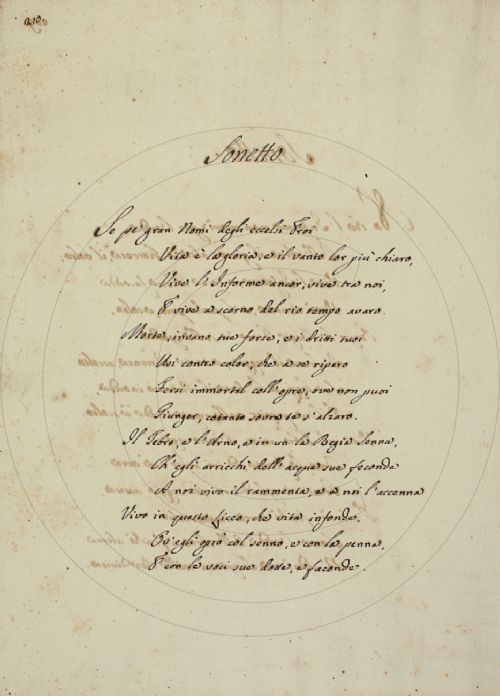 210.
Sonetto
Se pe' gran Nomi degli eccelsi Eroi
Vita è la gloria, e il vanto lor più chiaro,
Vive l'Informe ancor, vive tra noi,
E vive a scorno del rio tempo avaro.
Morte, invano tue forze, e i dritti tuoi
Usi contro color, che a se riparo
Fersi immortal coll'opre, ove non puoi
Giunger, cotanto sovra te s'alzaro.
Il Tebro, e l'Arno, e in un la Regia Senna,
Ch'egli arricchì dell'acque sue feconde
A noi vivo il rammenta, e a noi l'accenna
Vivo in questo Liceo, che vita infonde,
Ov'egli oprò col senno, e con la penna,
E con le voci sue dotte, e faconde.